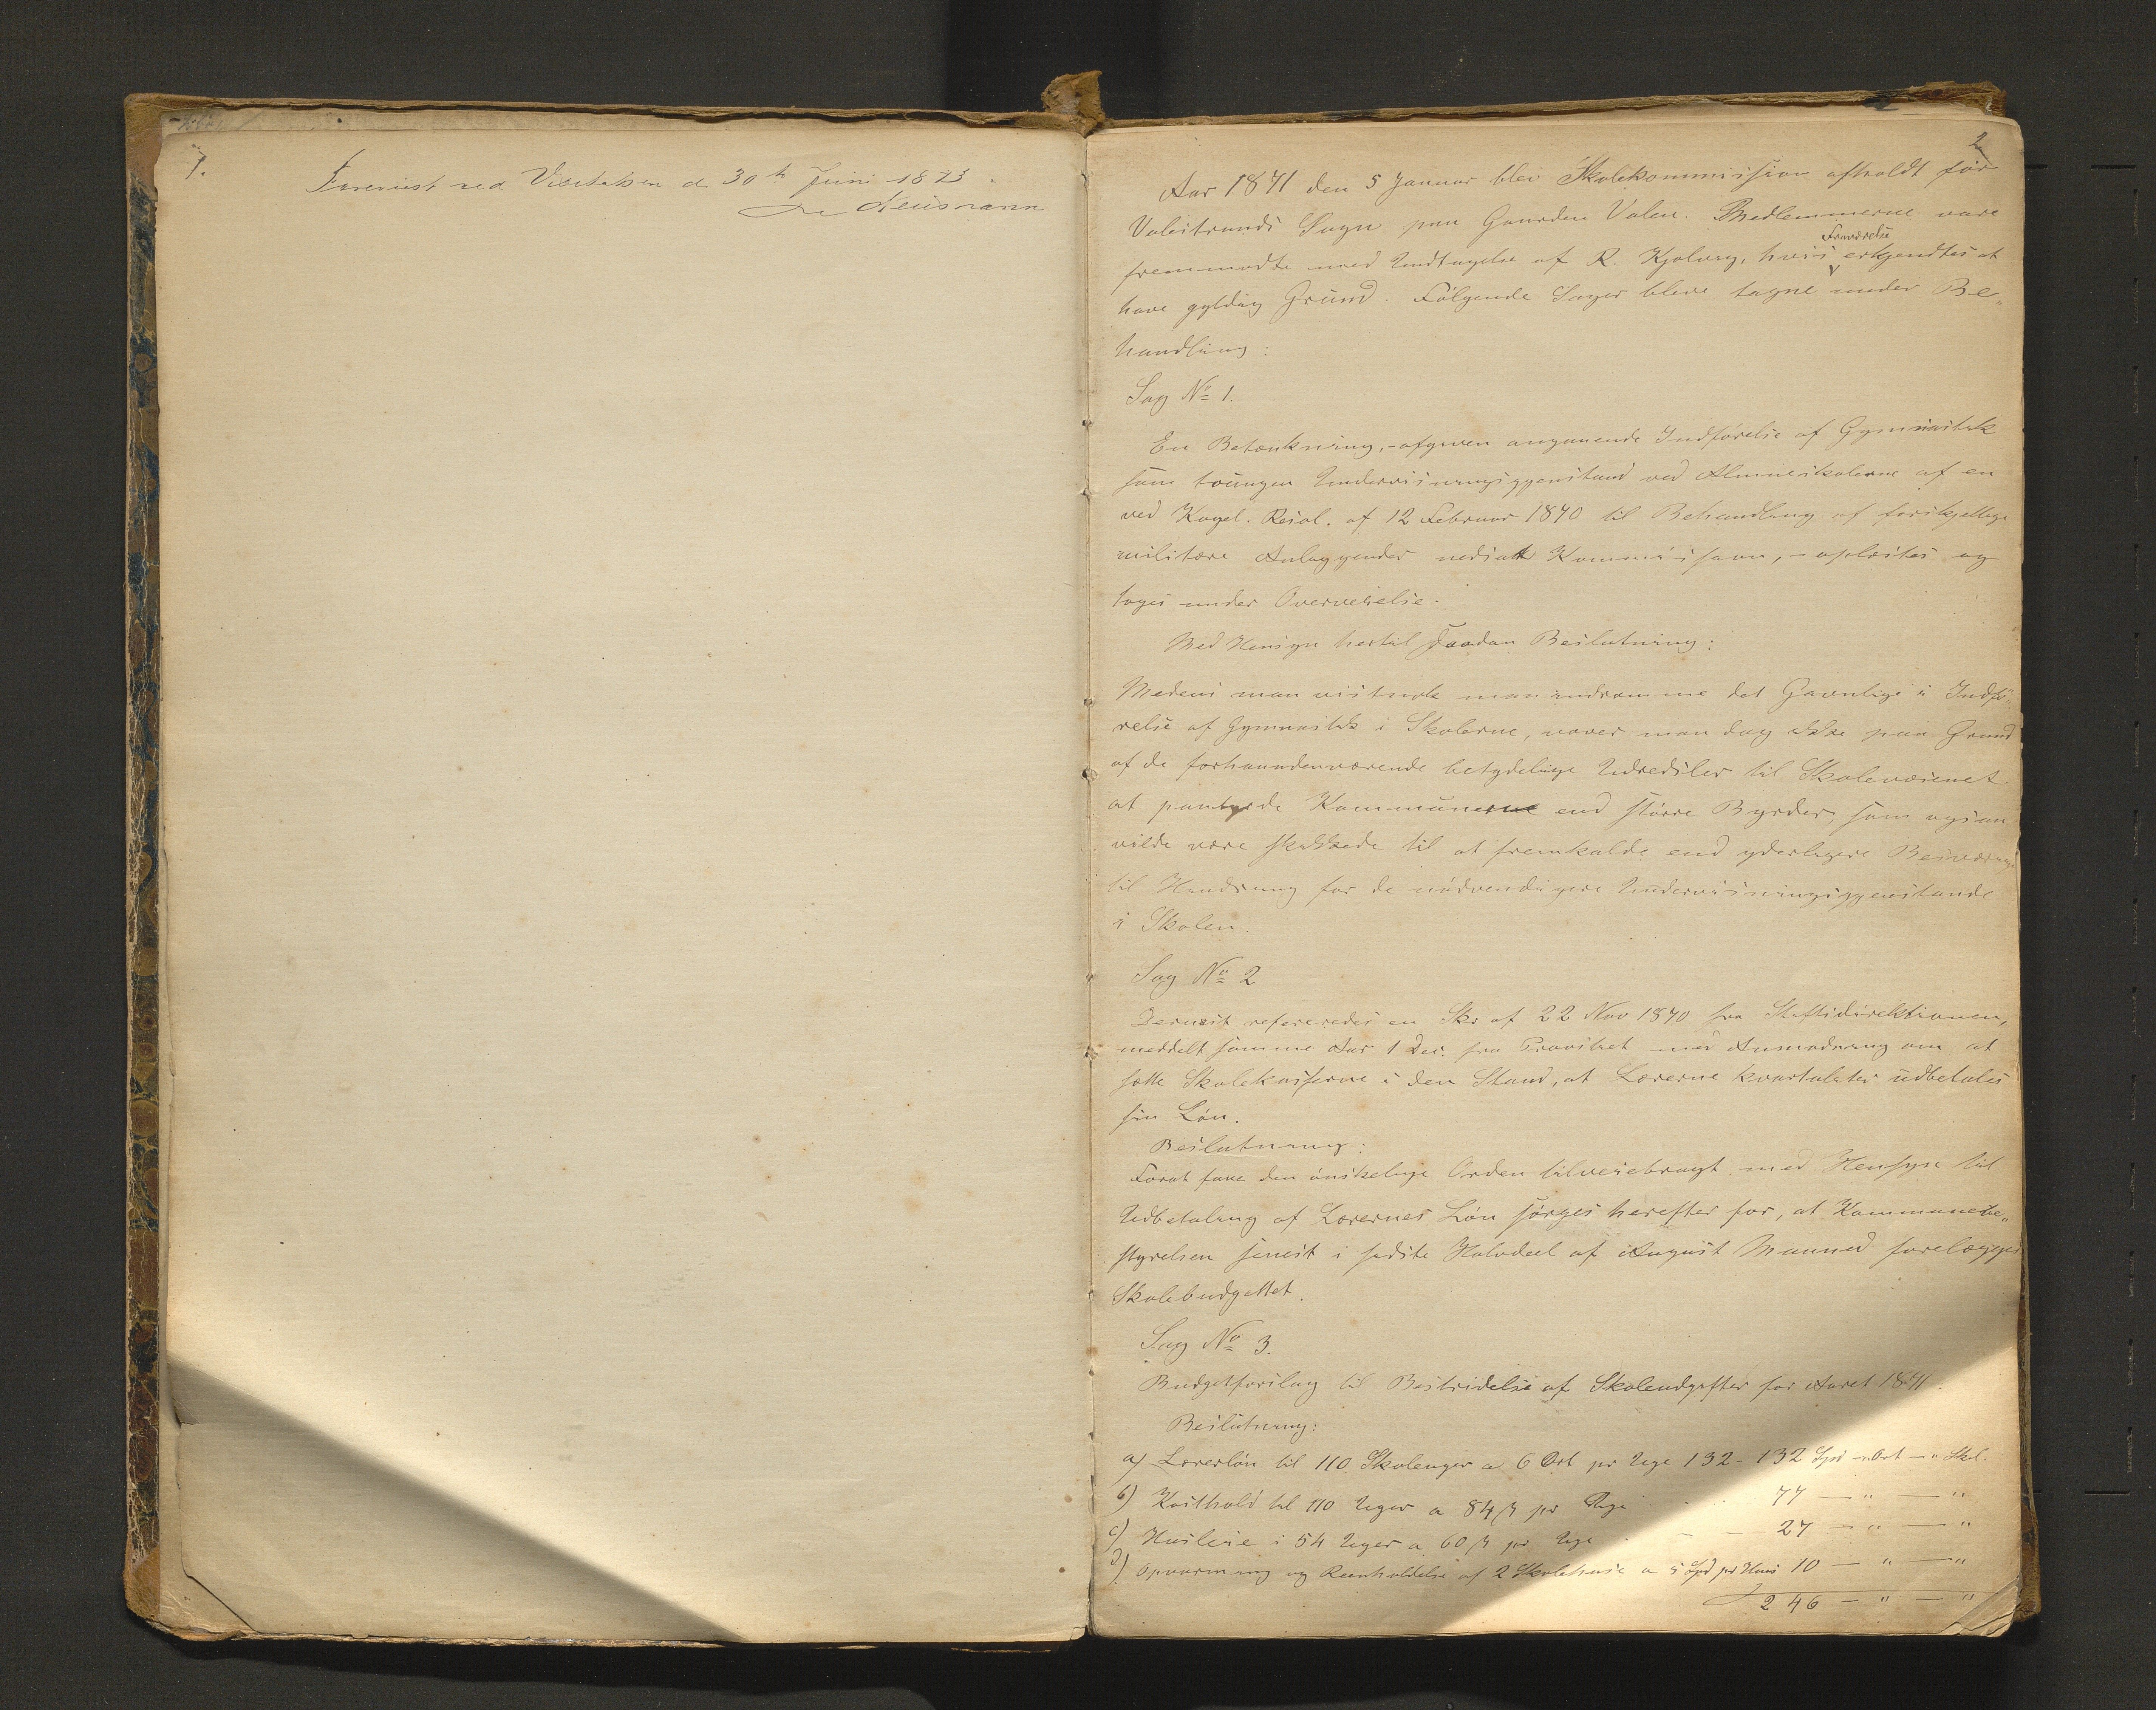 1.
Forevist ved Visitatsen d. 30te Juni 1873.
2
Aar 1871 den 5 Januar blev Skolekommission afholdt for
Valestrands Sogn paa Gaarden Valen. Medlemmerne vare
fremmødte med Undtagelse af R. Kjolveg, hvis Fraværelse erkjendtes at
have gyldig Grund. Følgende Sager bleve tagne under Be„
handling:
Sag No 1.
En Betænkning, - afgiven angaaende Indførelse af Gymnastik
som tvungen Undervisningsgjenstand ved Almueskolerne af en
ved Kngel. Resol. af 12 Februar 1870 til Behandling af forskjellige
militære Anliggender nedsatt Kommission, - oplæstes og
toges under Overveielse.
Med Hensyn hertil saadan Beslutning:
Medens man vistnok maa indrømme det Gavnlige i Indfø„
relse af Gymnastik i Skolerne, vover man dog ikke paa Grund
af de forhaandenværende betydelige Udredsler til Skolevæsenet
at paabyrde Kommunerne end større Byrder, som ogsaa
vilde være skikkede til at fremkalde end yderligere Besværinger
til Hindring for de nødvendigere Undervisningsgjenstande
i Skolen.
Sag No 2
Dernæst refereredes en Skr af 22 Nov 1870 fra Stiftsdirektionen,
meddelt samme Aar 1 Dec. fra Provstiet med Anmodning om at
sætte Skolekasserne i den Stand, at Lærerne kvartaliter udbetales
sin Løn.
Beslutning:
Forat faae den ønskelige Orden tilveiebragt med Hensyn til
Udbetaling af Lærernes Løn sørges herefter for, at Kommunebe„
styrelsen senest i sidste Halvdeel af August Maaned forelægges
Skolebudgettet.
Sag No 3.
Budgetforslag til Bestridelse af Skoleudgifter for Aaret 1871
Beslutning:
a) Lærerløn til 110 Skoleuger a 6 Ort pr Uge 132 - 132 Spd - „ Ort - „ Skil.
b) Kosthold til 110 Uger a 84 ß pr Uge - - - 77 — „ — „
c) Husleie i 54 Uger a 60 ß pr Uge - - - 27 — „ — „
d) Opvarmning og Reenholdelse af 2 Skolehuse a 5 Spd pr Huus 10 — „ — „
246 — „ — „